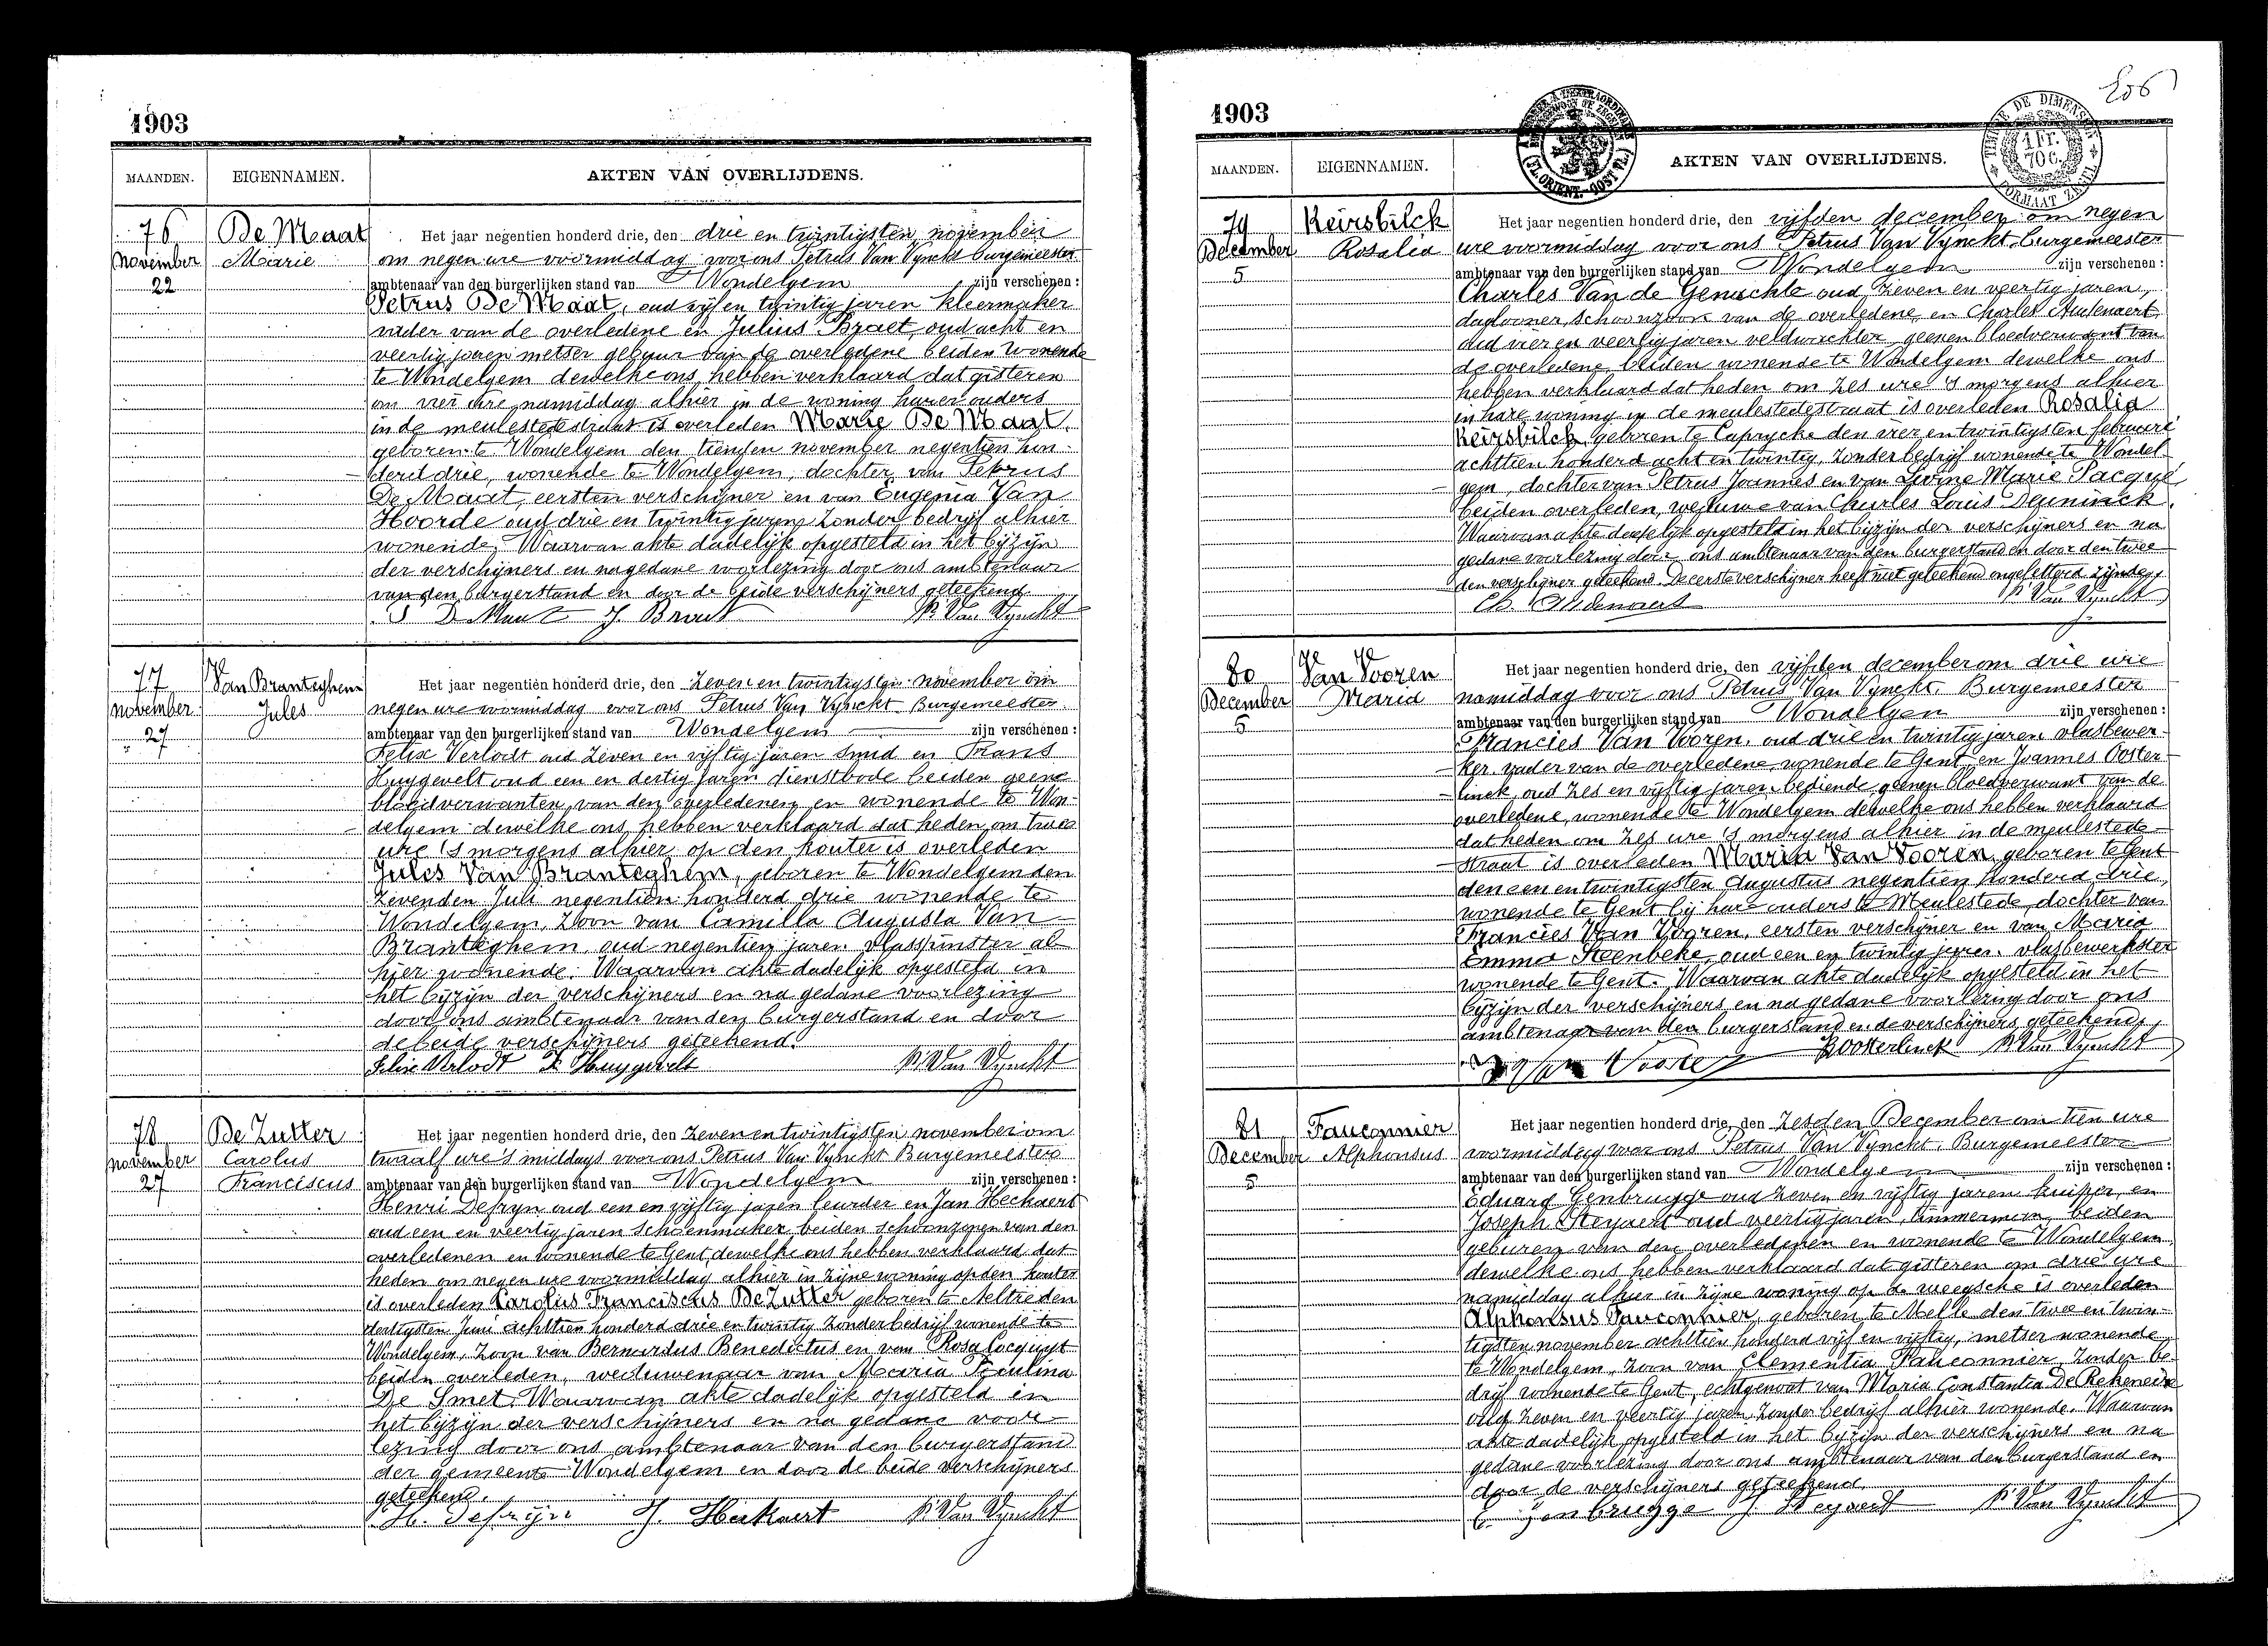 1903
MAANDEN. EIGENNAMEN. AKTEN VAN OVERLIJDENS.
76 De Maat Het jaar negentien honderd drie, den drie en twintigsten november
November Marie om negen ure voormiddag voor ons Petrus Van Vynckt burgemeester
22 ambtenaar van den burgerlijken stand van Wondelgem zijn verschenen :
Petrus De Maat, oud vijf en twintig jaren kleermaker
vader van de overledene en Julius Braet, oud acht en
veertig jaren metser gebuur van de overledene beiden wonende
te Wondelgem dewelke ons hebben verklaard dat gisteren
om vier ure namiddag alhier in de woning harer ouders
in de meulestedestraat is overleden Marie De Maat,
geboren te Wondelgem den tienden november negentien hon-
derd drie, wonende te Wondelgem, dochter van Petrus
De Maat, eersten verschijner en van Eugenia Van
Hoorde oud drie en twintig jaren zonder bedrijf alhier
wonende, Waarvan akte dadelijk opgesteld in het bijzijn
der verschijners en na gedane voorlezing door ons ambtenaar
van den burgerstand en door de beide verschijners geteekend
J. Braet P. Van Vynckt
77 Van Branteghem Het jaar negentien honderd drie, den zeven en twintigsten november om
November Jules negen ure voormiddag voor ons Petrus Van Vynckt Burgemeester
27 ambtenaar van den burgerlijken stand van Wondelgem zijn verschenen :
Felix Verlodt oud zeven en vijftig jaren smid en Frans
Huygevelt oud een en dertig jaren dienstbode beiden geene
bloedverwanten van den overledenen en wonende te Won-
delgem dewelke ons hebben verklaard dat heden om twee
ure 's morgens alhier op den kouter is overleden
Jules Van Branteghem, geboren te Wondelgem den
zevenden Juli negentien honderd drie wonende te
Wondelgem, zoon van Camilla Augusta Van
Branteghem, oud negentien jaren vlasspinster al-
hier wonende. Waarvan akte dadelijk opgesteld in
het bijzijn der verschijners en na gedane voorlezing
door ons ambtenaar van den burgerstand en door
de beide verschijners geteekend.
Felix Verlodt F. Huygevelt P. Van Vynckt
78 De Zutter Het jaar negentien honderd drie, den zeven en twintigsten november om
November Carolus twaalf ure 's middags voor ons Petrus Van Vynckt Burgemeester
27 Franciscus ambtenaar van den burgerlijken stand van Wondelgem zijn verschenen :
Henri Defryn oud een en vijftig jaren leurder en Jan Heckaert
oud een en veertig jaren schoenmaker beiden schoonzonen van den
overledenen en wonende te Gent dewelke ons hebben verklaard dat
heden om negen ure voormiddag alhier in zijne woning op den kouter
is overleden Carolus Franciscus De Zutter geboren te Aeltre den
dertigsten juni achttien honderd drie en twintig zonder bedrijf wonende te
Wondelgem, zoon van Bernardus Benedictus en van Rosa Cocquyt
beiden overleden, weduwenaar van Maria Paulina
De Smet. Waarvan akte dadelijk opgesteld in
het bijzijn der verschijners en na gedane voor-
lezing door ons ambtenaar van den burgerstand
der gemeente Wondelgem en door de beide verschijners
geteekend.
H. Defryn J. Hekaert P. Van Vynckt
1903
MAANDEN. EIGENNAMEN. AKTEN VAN OVERLIJDENS.
79 Keirsbilck Het jaar negentien honderd drie, den vijfden december om negen
December Rosalia ure voormiddag voor ons Petrus Van Vynckt burgemeester
5 ambtenaar van den burgerlijken stand van Wondelgem zijn verschenen :
Charles Van de Genachte oud zeven en veertig jaren,
daglooner, schoonzoon van de overledene, en Charles Audenaert
oud vier en veertig jaren veldwachter geenen bloedverwant van
de overledene beiden wonende te Wondelgem dewelke ons
hebben verklaard dat heden om zes ure 's morgens alhier
in hare woning in de meulestedestraat is overleden Rosalia
Keirsbilck, geboren te Caprycke den vier en twintigsten februari
achttien honderd acht en twintig, zonder bedrijf wonende te Wondel-
gem, dochter van Petrus Joannes en van Livine Marie Pacque
beiden overleden, weduwe van Charles Louis Deyninck.
Waarvan akte dadelijk opgesteld in het bijzijn der verschijners en na
gedane voorlezing door ons ambtenaar van den burgerstand en door den twee-
den verschijner geteekend. De eerste verschijner heeft niet geteekend ongeletterd zijnde.
Ch. Audenaert P. Van Vynckt
80 Van Vooren Het jaar negentien honderd drie, den vijfden december om drie ure
December Maria namiddag voor ons Petrus Van Vynckt, Burgemeester
5 ambtenaar van den burgerlijken stand van Wondelgem zijn verschenen :
Francies Van Vooren, oud drie en twintig jaren vlasbewer-
ker, vader van de overledene, wonende te Gent, en Joannes Ooster-
linck, oud zes en vijftig jaren bediende geenen bloedverwant van de
overledene, wonende te Wondelgem dewelke ons hebben verklaard
dat heden om zes ure 's morgens alhier in de meulestede-
straat is overleden Maria Van Vooren, geboren te Gent
den een en twintigsten Augustus negentien honderd drie,
wonende te Gent bij hare ouders te Meulestede, dochter van
Francies Van Vooren, eersten verschijner en van Maria
Emma Steenbeke, oud een en twintig jaren, vlasbewerkster
wonende te Gent. Waarvan akte dadelijk opgesteld in het
bijzijn der verschijners en na gedane voorlezing door ons
ambtenaar van den burgerstand en de verschijners geteekend.
Van Vooren J Oosterlinck P. Van Vynckt
81 Fauconnier Het jaar negentien honderd drie, den zesden December om tien ure
December Alphonsus voormiddag voor ons Petrus Van Vynckt, Burgemeester
5 ambtenaar van den burgerlijken stand van Wondelgem zijn verschenen :
Eduard Genbrugge oud zeven en vijftig jaren kuiper, en
Joseph Steyaert oud veertig jaren, timmerman, beiden
geburen van den overledenen en wonende te Wondelgem,
dewelke ons hebben verklaard dat gisteren om drie ure
namiddag alhier in zijne woning op de weegsche is overleden
Alphonsus Fauconnier, geboren te Melle den twee en twin-
tigsten november achttien honderd vijf en vijftig, metser wonende
te Wondelgem, zoon van Clementia Fauconnier, zonder be-
drijf wonende te Gent, echtgenoot van Maria Constantia De Rekeneire
oud zeven en veertig jaren, zonder bedrijf alhier wonende. Waarvan
akte dadelijk opgesteld in het bijzijn der verschijners en na
gedane voorlezing door ons ambtenaar van den burgerstand en
door de verschijners geteekend.
E Genbrugge J. Steyaert P. Van Vynckt